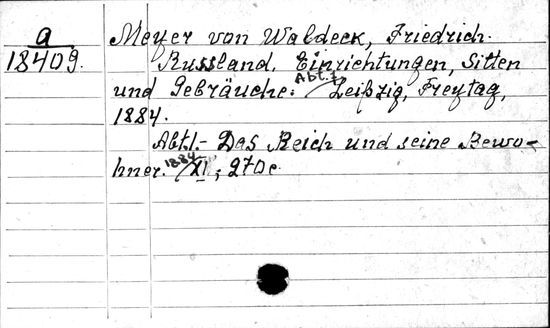 a
18409.
Meyer von Waldeck, Friedrich.
Russland. Einrichtungen, Sitten
und Gebräuche. Abt. I. Leipzig, Freytag,
1884.
Abt. I.- Das Reich und seine Bewo-
hner. 1884 XI, 270 c.